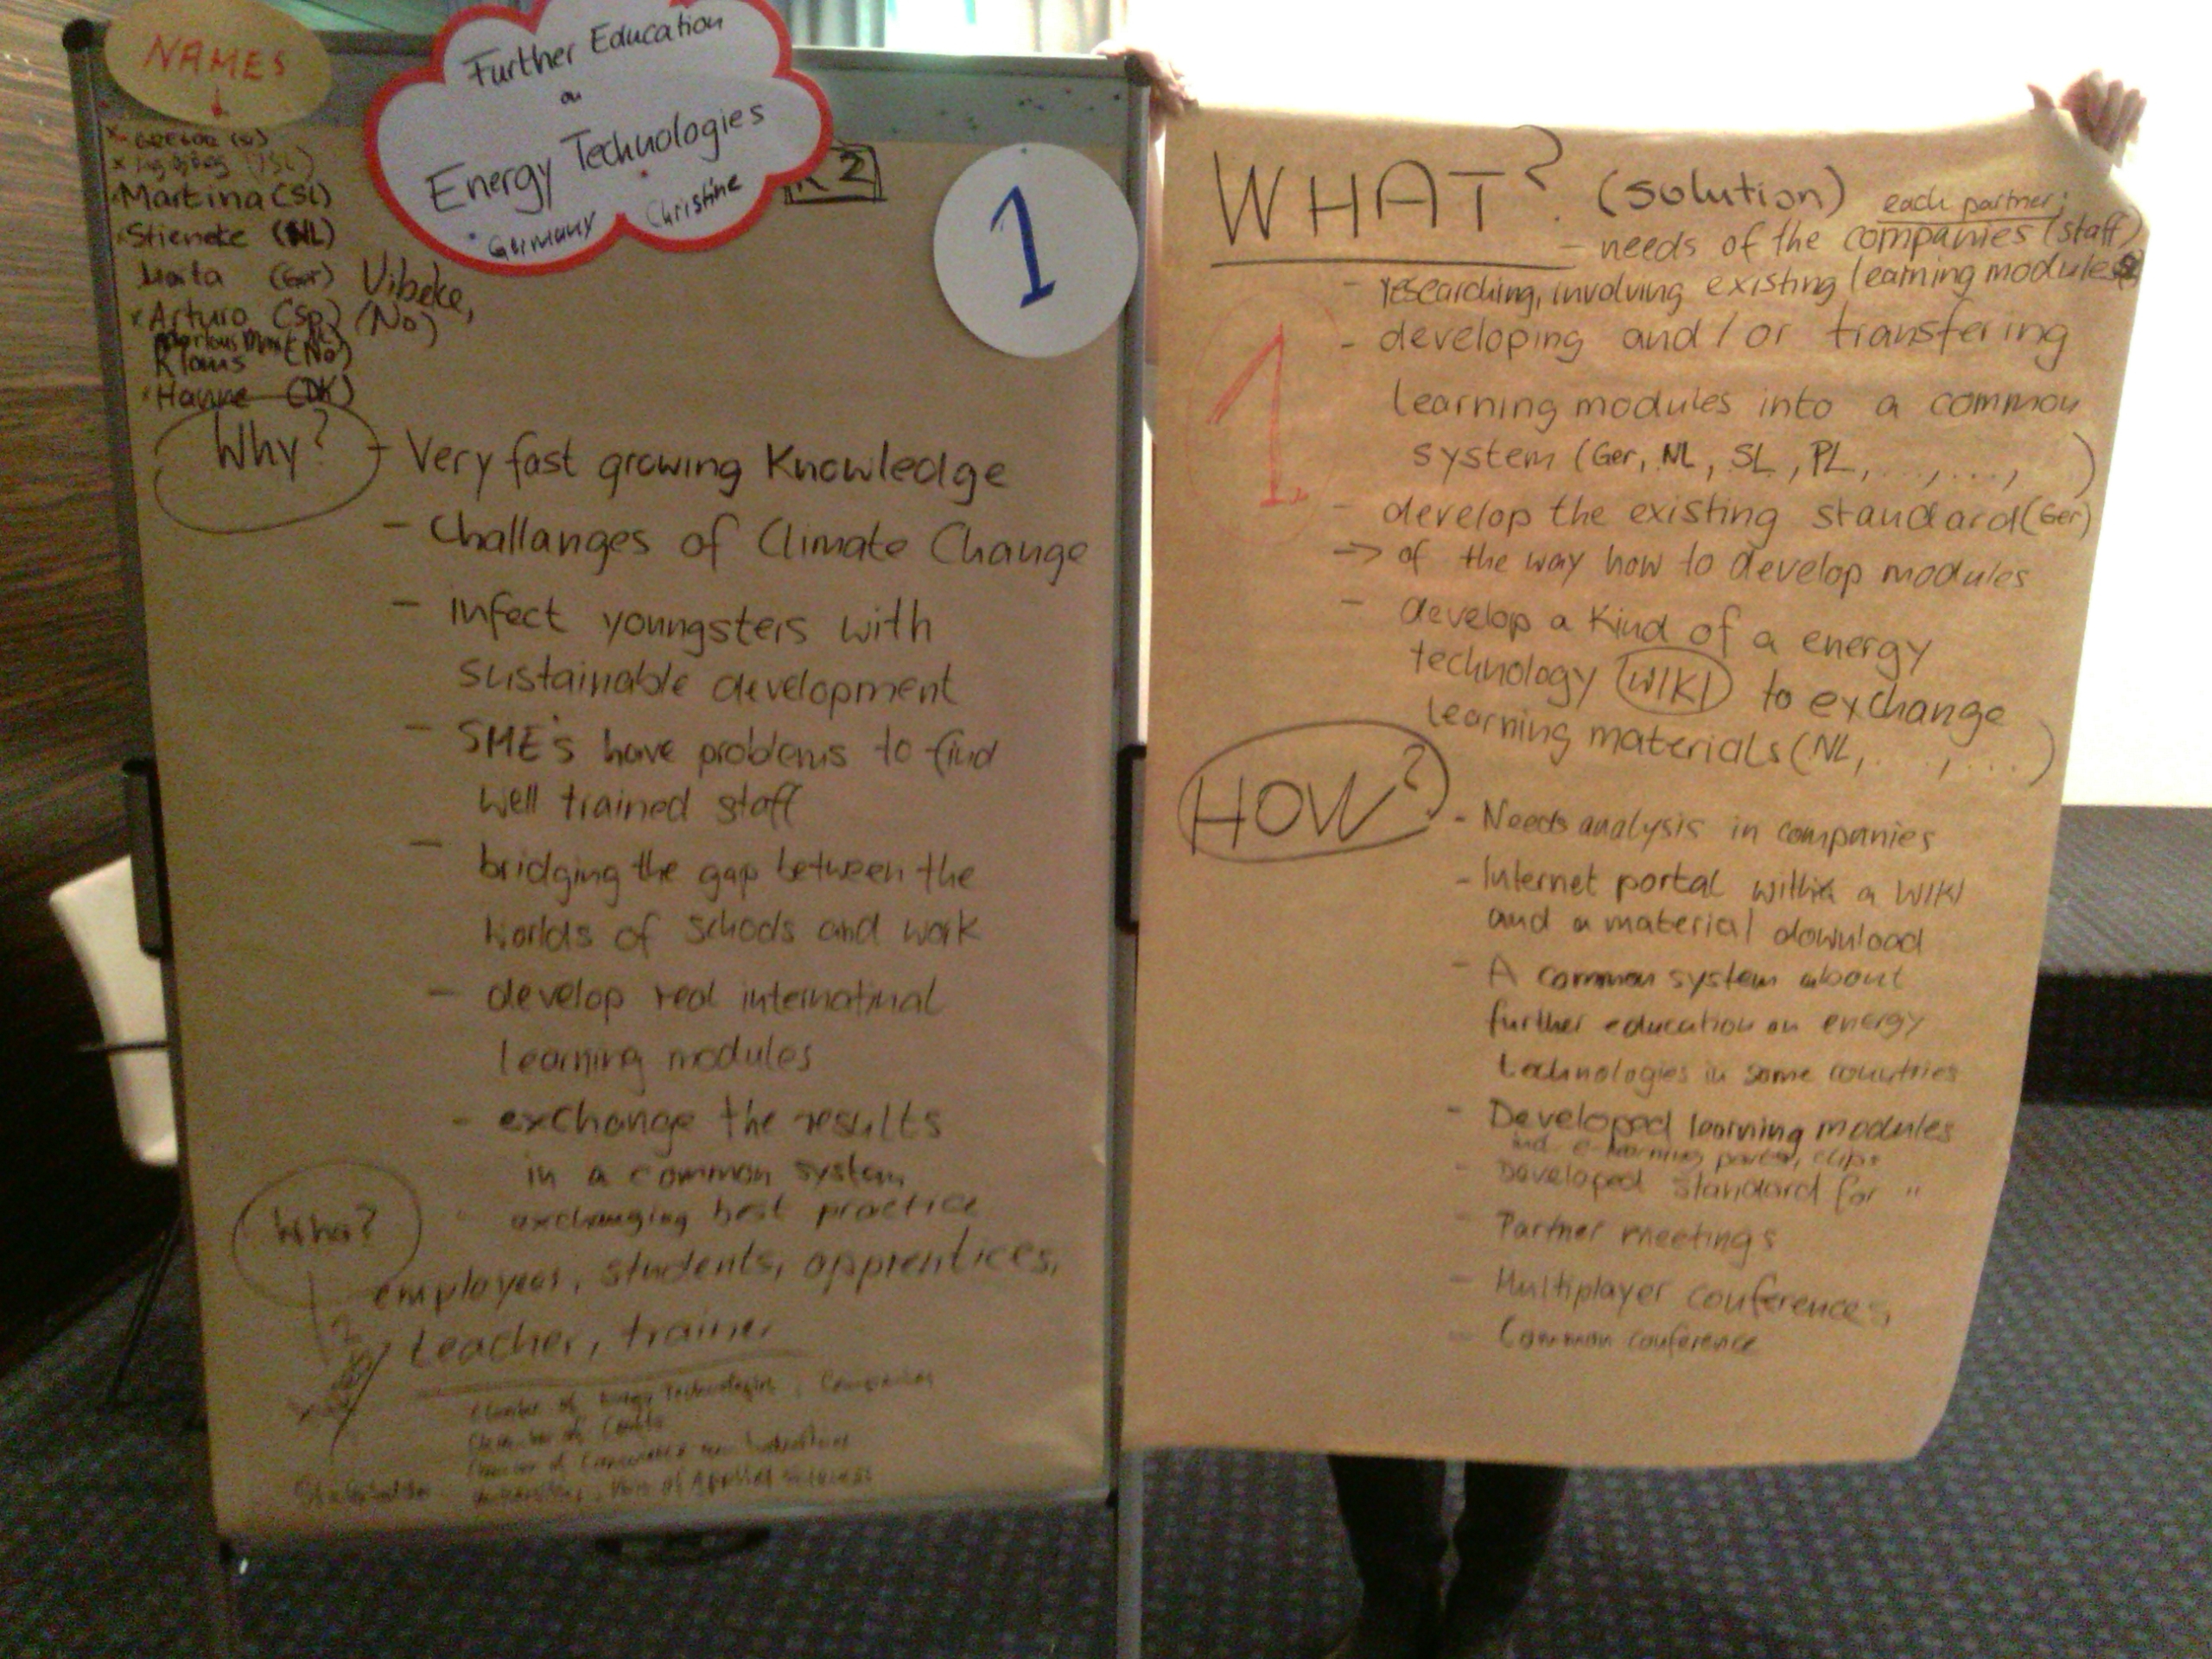 NAMES
Further Education
on
Energy Technologies
Germany Christine
2
1
Martina (SL)
Stieneke (NL)
(Ger) Vibeke,
Arturo (Sp) (No)
Klaus (No)
Hanne (DK)
Why?
- Very fast growing Knowledge
- Challanges of Climate Change
- infect youngsters with
sustainable development
- SME's have problems to find
well trained staff
- bridging the gap between the
worlds of schools and work
- develop real internatinal
learning modules
- exchange the results
in a common system
exchanging best practice
Who?
employees, students, apprentices,
teacher, trainer
of Energy Technologies, Companies
of
of
of Applied Sciences
WHAT? (solution) each partner;
- needs of the companies (staff)
- researching, involving existing learning modules
1.
- developing and/or transfering
learning modules into a common
system (Ger, NL, SL, PL, ..., ..., )
- develop the existing standard (Ger)
-> of the way how to develop modules
- develop a Kind of a energy
technology WIKI to exchange
learning materials (NL, ..., ...)
HOW?
- Needs analysis in companies
- Internet portal with a WIKI
and a material download
- A common system about
further education on energy
technologies in some countries
- Developed learning modules
e-learning parts, clips
- Developed standard for "
- Partner meetings
- Multiplayer conferences,
- Common conference